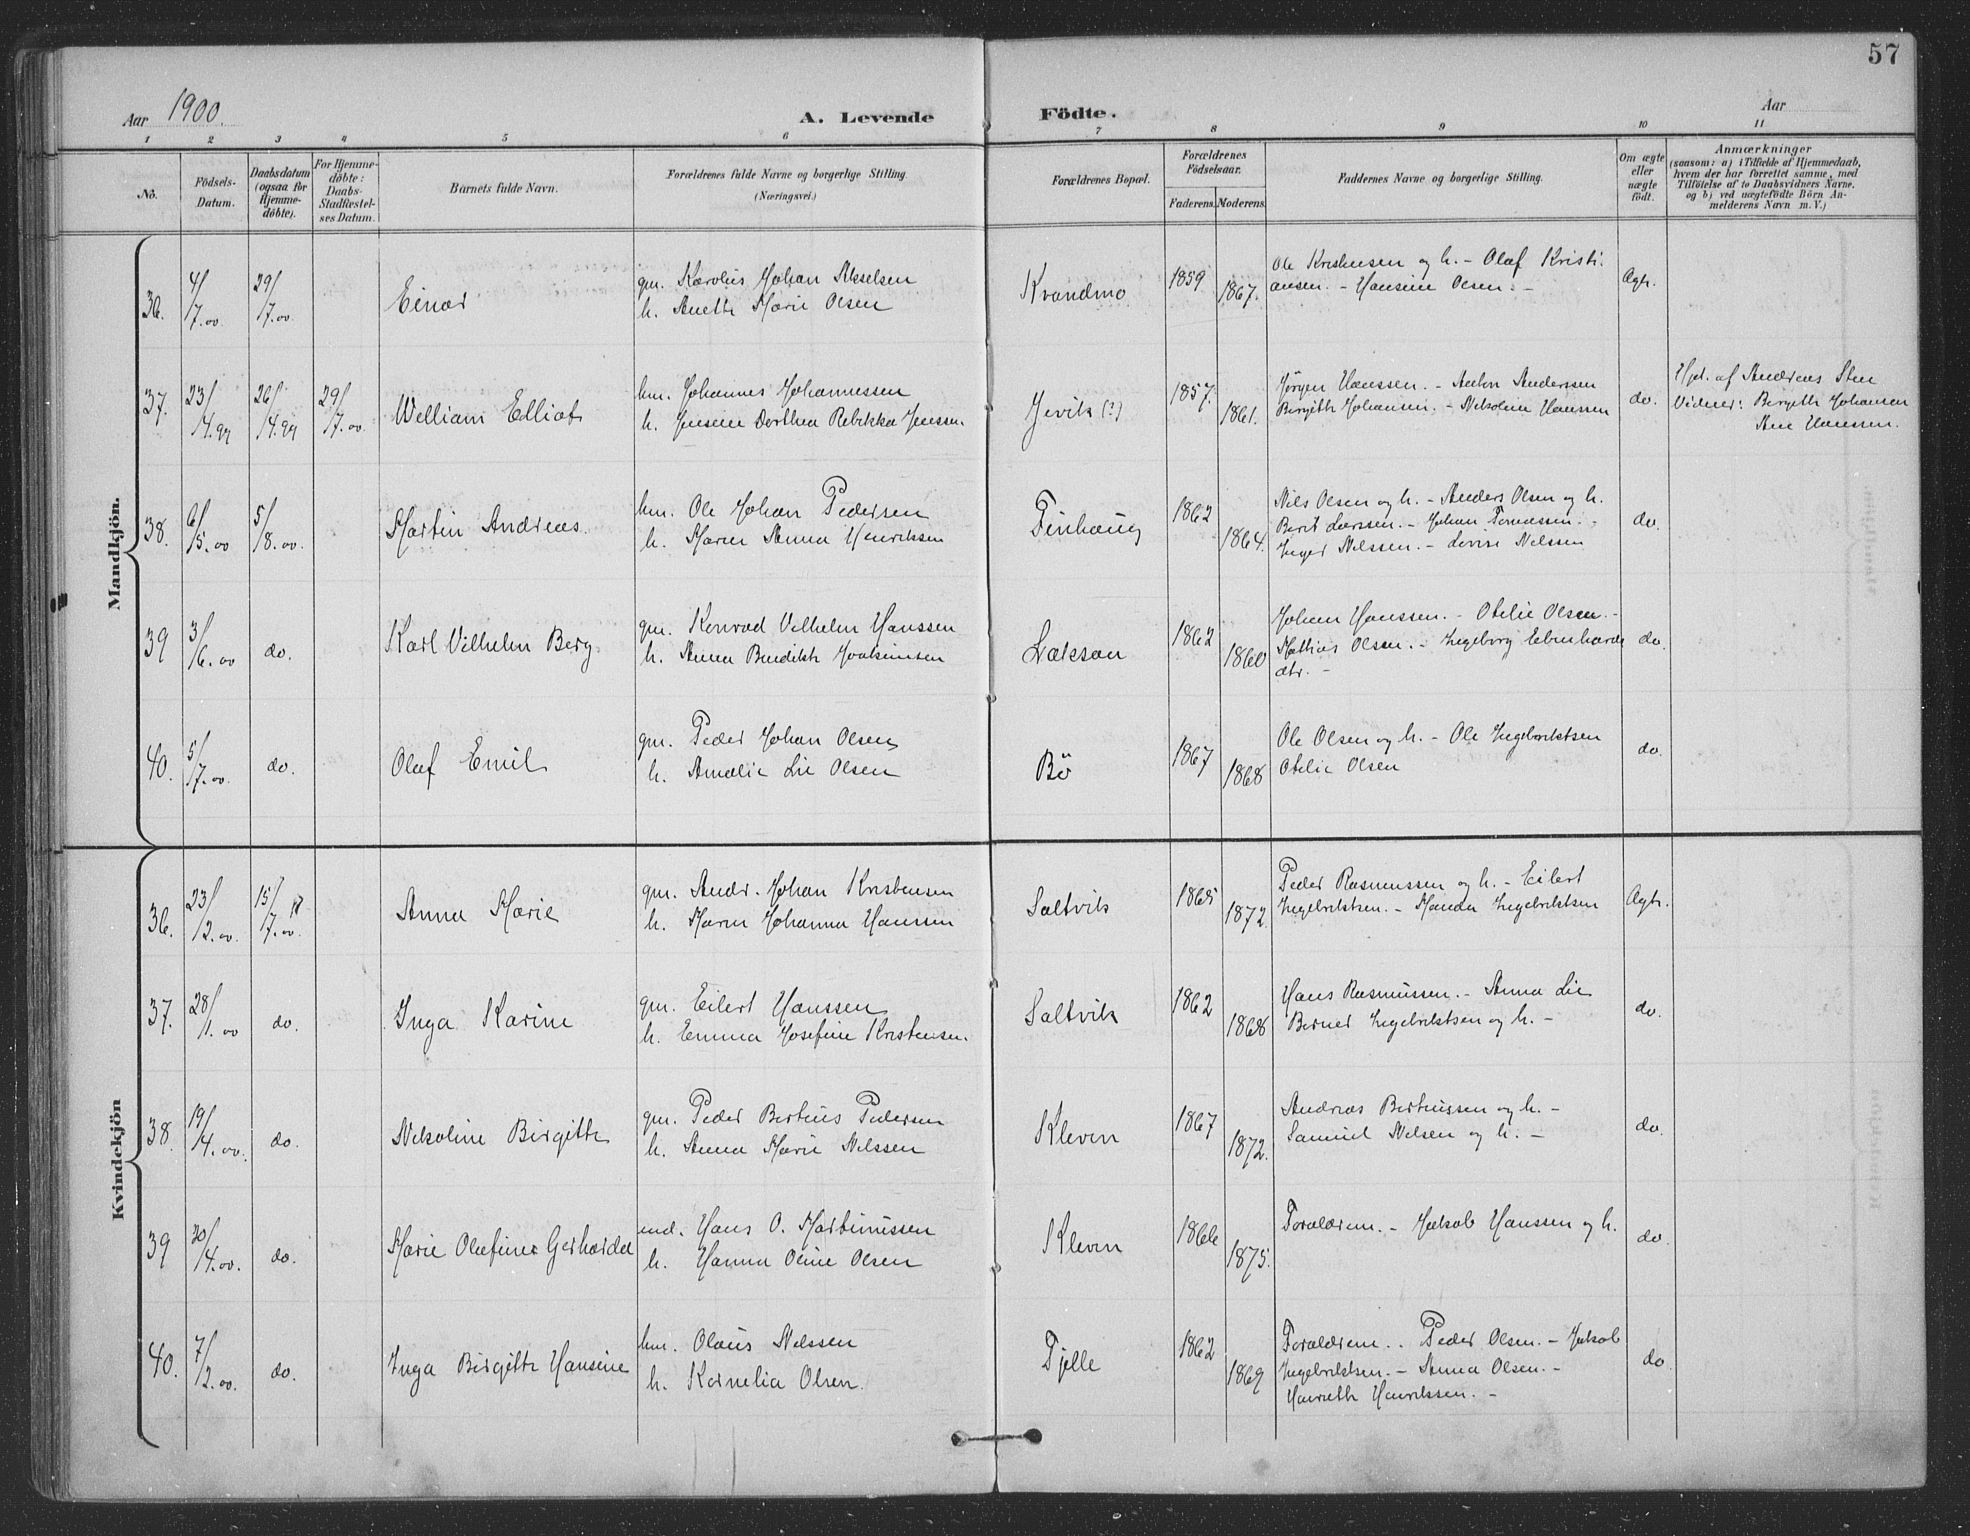 57
Aar 1900.
A. Levende Födte.
Aar
1 2 3 4 5 6 7 8 9 10 11
No.
Födsels-
Datum.
Daabsdatum
(ogsaa for
Hjemme-
döbte).
For Hjemme-
döbte:
Daabs-
Stadfæstel-
ses Datum.
Barnets fulde Navn.
Forældrenes fulde Navne og borgerlige Stilling.
(Næringsvei.)
Forældrenes Bopæl.
Forældrenes
Födselsaar.
Faderens. Moderens.
Faddernes Navne og borgerlige Stilling.
Om ægte
eller
uægte
födt.
Anmærkninger
(saasom: a) i Tilfælde af Hjemmedaab,
hvem der har forrettet samme, med
Tilföielse af to Daabsvidners Navne,
og b) ved uægtefödte Börn An-
melderens Navn m. V.)
Mandkjön.
36. 4/7.00 29/7.00 Einar
gm. Karolius Johan Akselsen
h. Anette Marie Olsen
Kvandmo 1859 1867.
Ole Kristensen og h. - Olaf Kristi-
ansen. - Hansine Olsen. -
Ægte.
37. 23/14.99 26/14.99 29/7.00 William Elliot
hm. Johannes Johannessen
h. Jensine Dorthea Rebekka Jenssen.
Jevik (?) 1857. 1861.
Jörgen Hanssen. - Anton Anderssen
Birgitte Johansen. - Nikoline Hanssen
do.
Hjd. af Andreas Sten
Vidner: Birgitte Johansen
Ane Hanssen.
38. 6/5.00 5/8.00 Martin Andreas.
hm. Ole Johan Pedersen
h. Maren Anna Henriksen
Finhaug 1862 1864.
Nils Olsen og h. - Anders Olsen og h.
Berit Larssen. - Johan Tomassen. -
Inger Nilssen. - Lovise Nilssen
do.
39 3/6.00 do. Karl Vilhelm Berg.
gm. Konrad Vilhelm Hanssen
h. Anna Bendikte Joakimsen
Laksaa 1862 1860
Johan Hanssen. - Otelie Olsen. -
Mathias Olsen. - Ingeborg Eberhards
dtr. -
do.
40. 5/7.00. do. Olaf Emil
gm. Peder Johan Olsen
h. Amalie Lie Olsen
Bö 1867 1868
Ole Olsen og h. - Ole Ingebriktsen
Otelie Olsen
do.
Kvindekjön
36. 23/2.00. 15/7.00. Anna Marie
gm. Andr. Johan Kristensen
h. Maren Johanna Hansen
Saltvik 1865 1872.
Peder Rasmussen og h. - Eilert
Ingebriktsen. - Manda Ingebriktsen
Ægte.
37. 28/1.00 do. Inga Karine
gm. Eilert Hanssen
h. Emma Josefine Kristensen.
Saltvik 1862 1868
Hans Rasmussen. - Anna Lie
Berner Ingebriktsen og h. -
do.
38. 19/4.00. do. Nikoline Birgitte
gm. Peder Bertheus Pedersen
h. Anna Marie Nilssen
Kleven 1867 1872.
Andreas Bertheussen og h. -
Samuel Nilsen og h. -
do.
39 20/4.00. do. Marie Olufine Gerharda
ind. Hans O. Martinussen
h. Hanna Oline Olsen
Kleven 1866 1875.
Forældrene. - Jakob Hanssen og h.
do.
40. 7/2.00. do. Inga Birgitte Hansine
hm. Olaus Nilssen
h. Kornelia Olsen.
Fjelle 1862 1869
Forældrene. . Peder Olsen. - Jakob
Ingebriktsen. - Anna Olsen. -
Henriette Henrikssen. -
do.